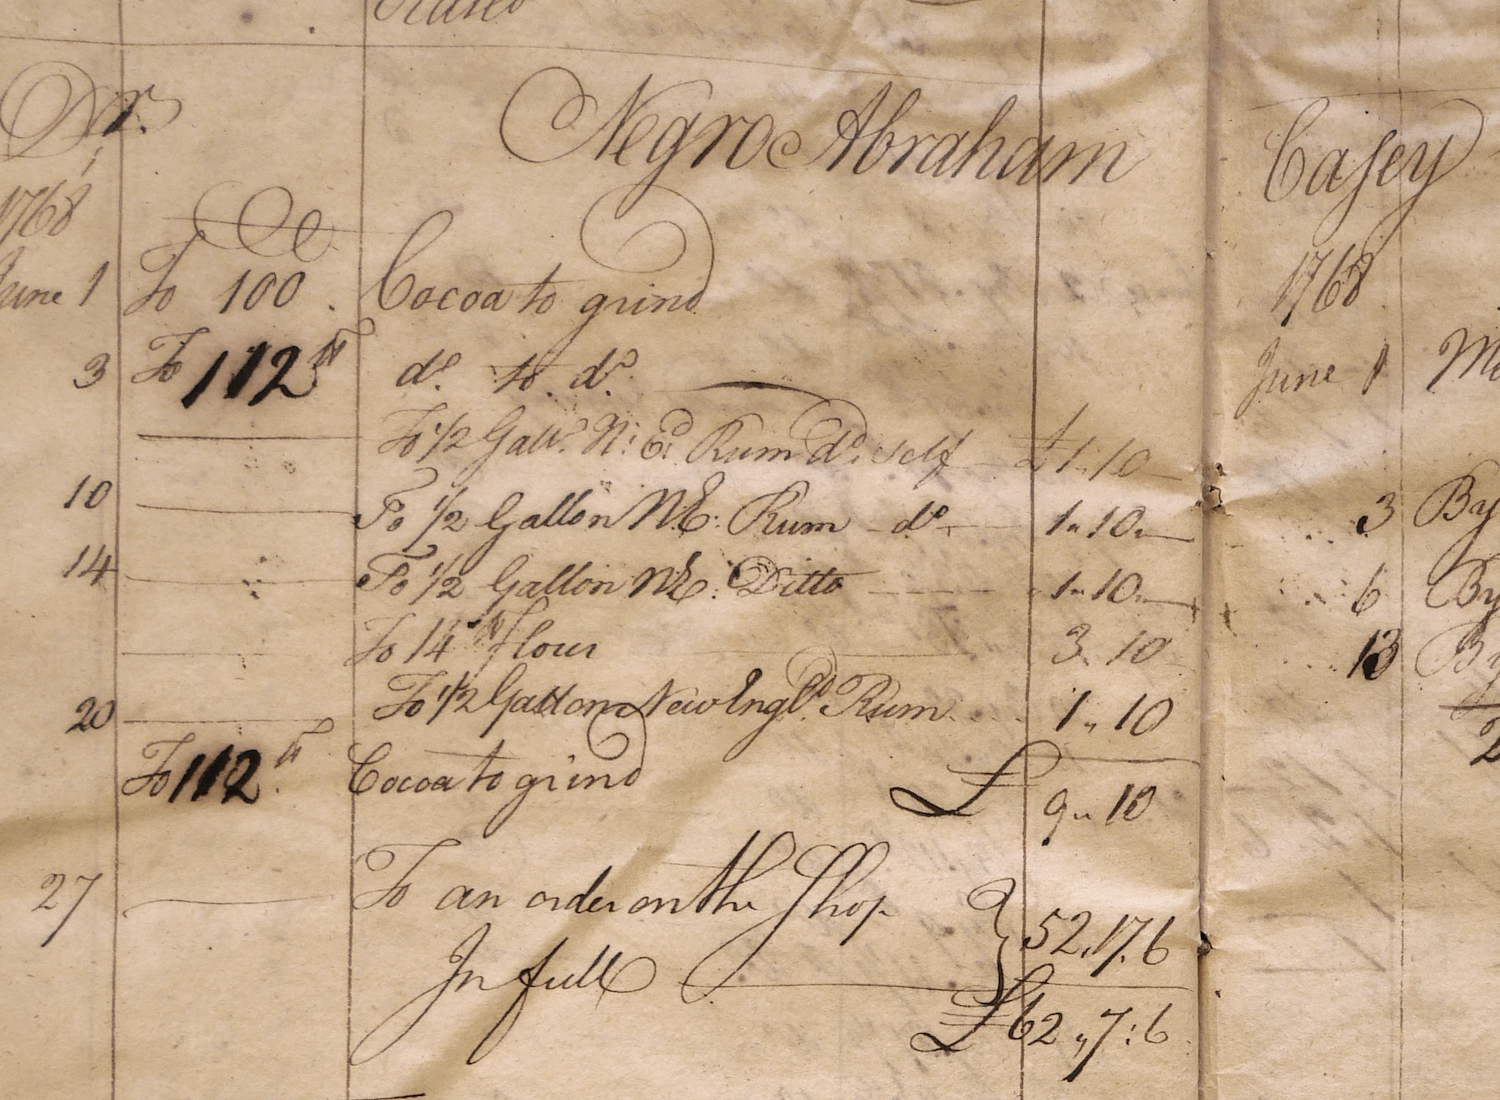 Dr. Negro Abraham Casey
1768
June 1 To 100 . Cocoa to grind
3 To 112 lb do. to do.
To 1/2 Gall. N: Ed Rum do. self £1.10
10 To 1/2 Gallon NE: Rum do 1,,10
14 To 1/2 Gallon NE: Ditto 1,,10
To 14 lb flour 3.10
20 To 1/2 Gallon New Engld. Rum 1,,10
To 112 lb Cocoa to grind £ 9,,10
27 To an order on the Shop
In full } 52.17.6
£62,,7:6
1768
June 1
3 By
6 By
13 By